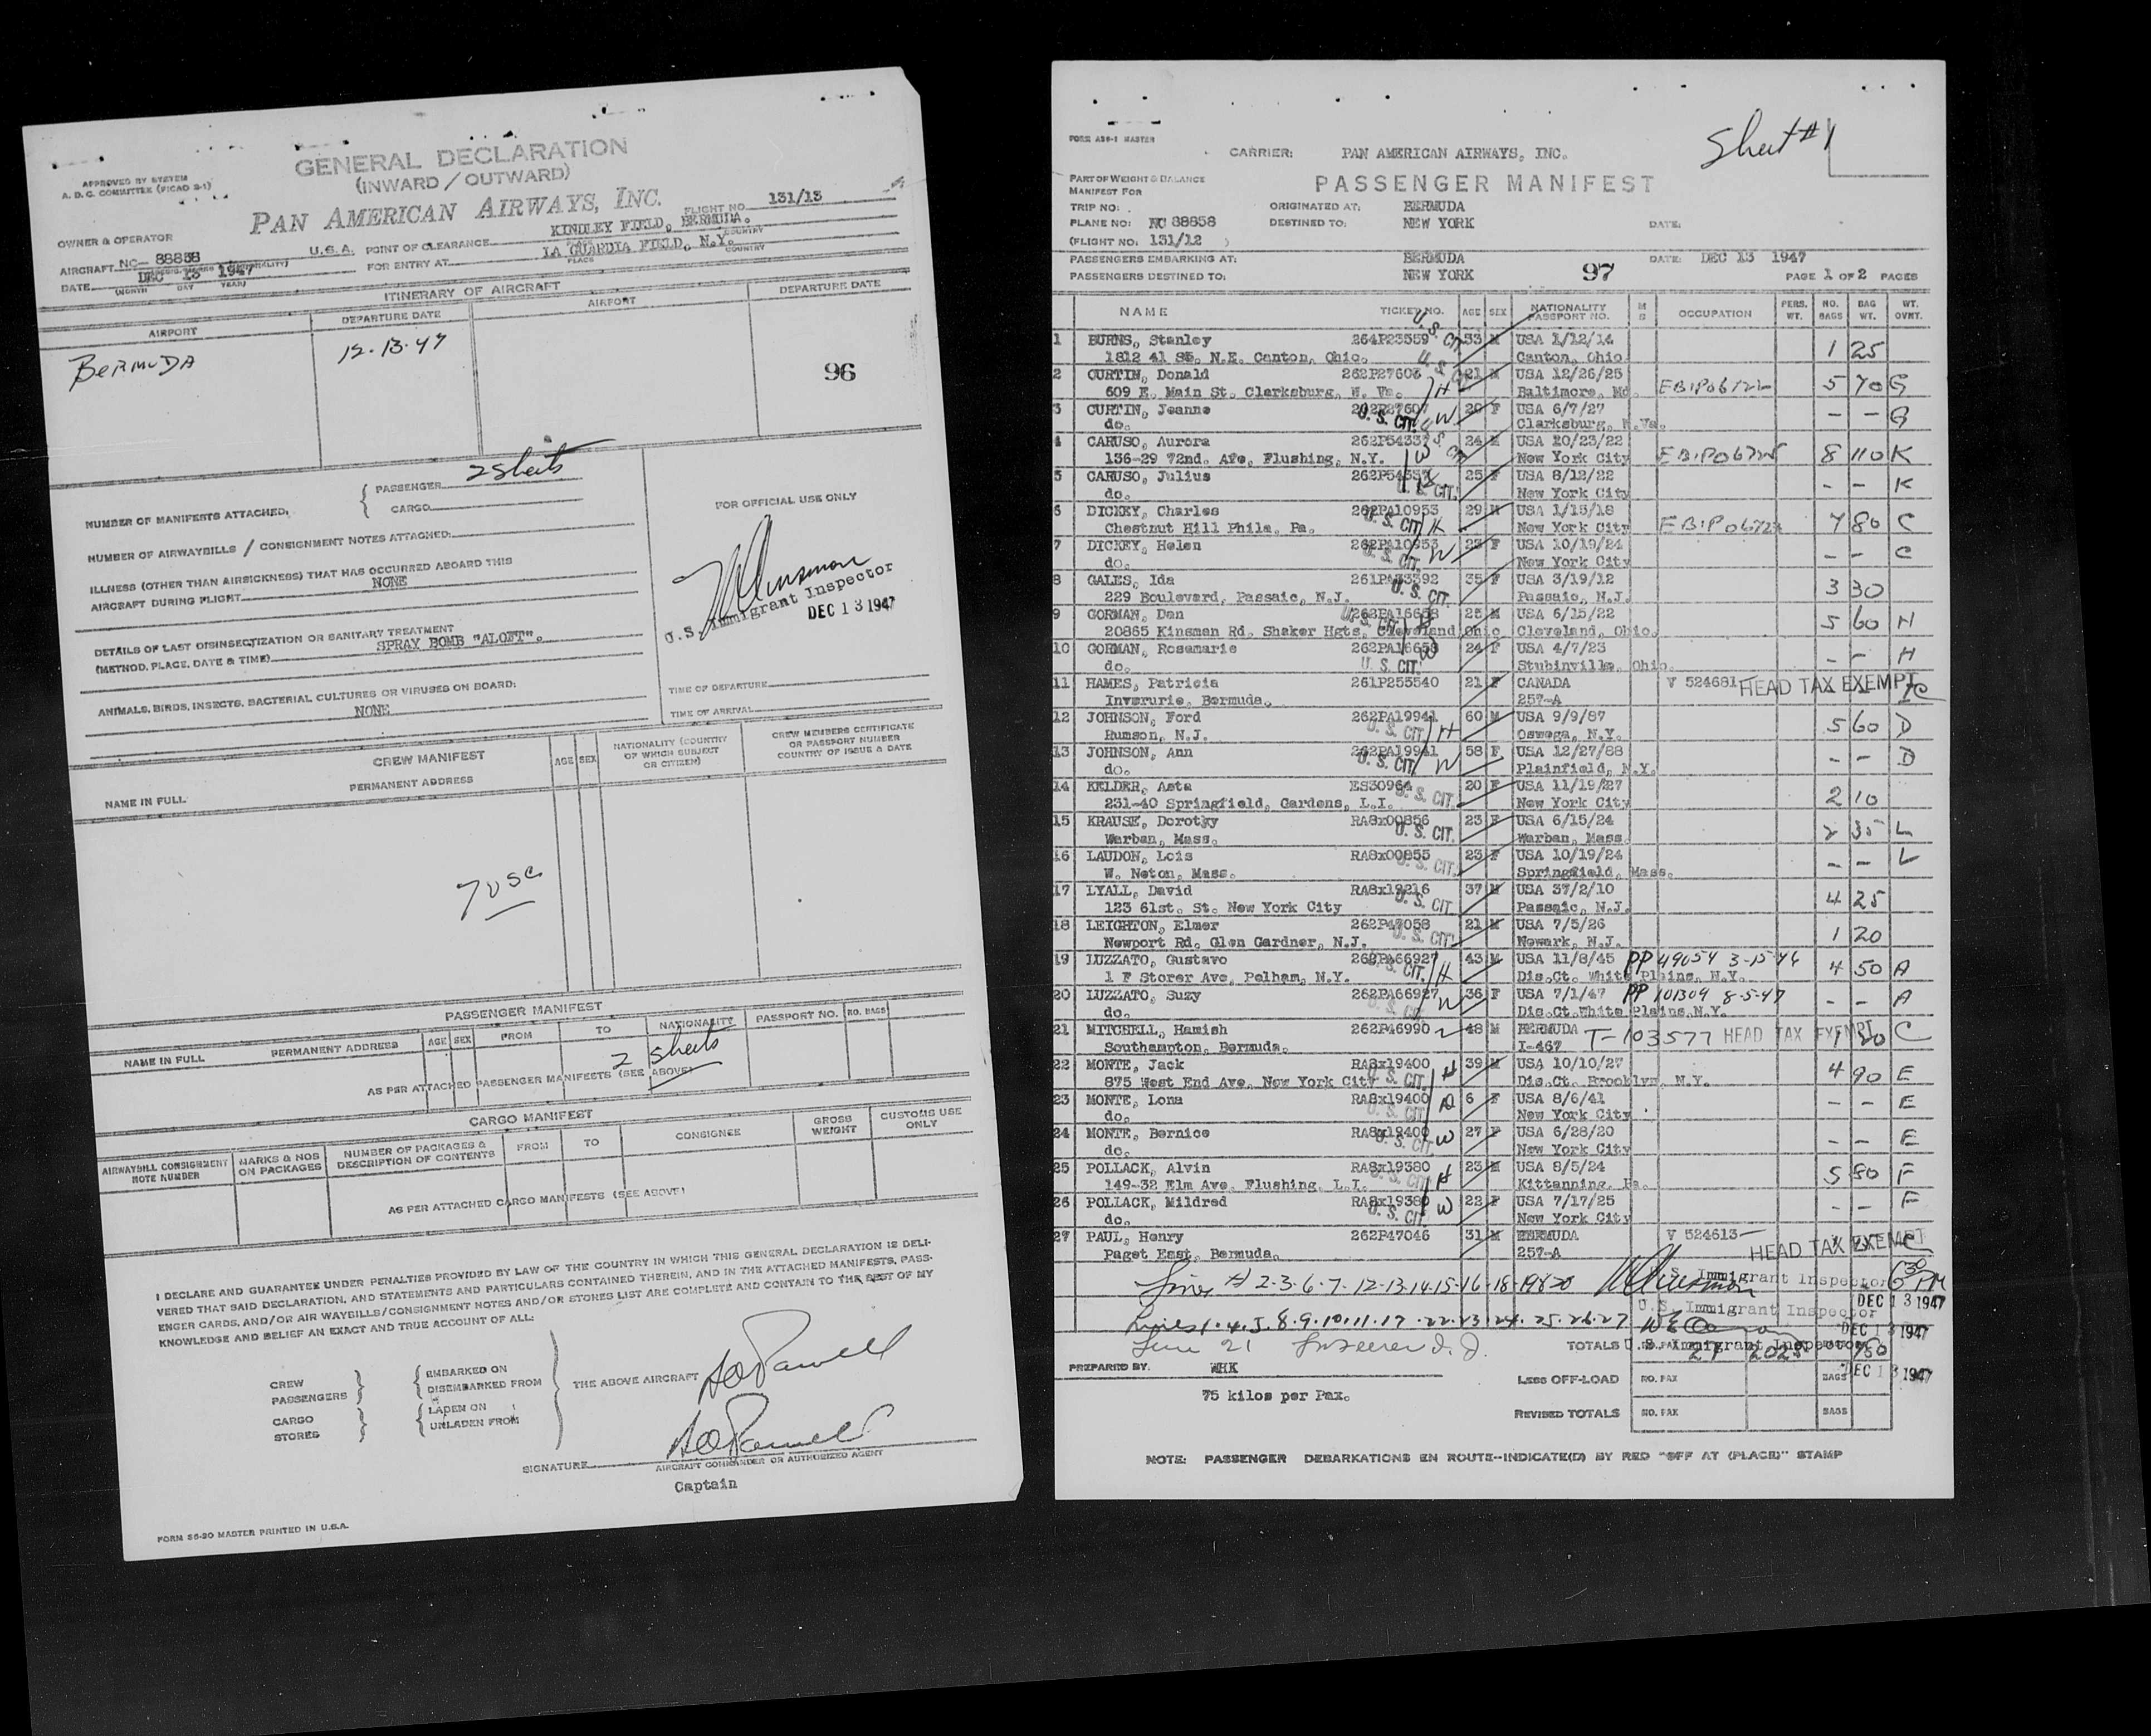 APPROVED BY SYSTEM
A. D. C. COMMITTEE (PICAO 2-1)
GENERAL DECLARATION
(INWARD / OUTWARD)
PAN AMERICAN AIRWAYS, INC.
FLIGHT NO. 131/13
OWNER & OPERATOR
AIRCRAFT NC- 88858 U.S.A. POINT OF CLEARANCE KINDLEY FIELD, BERMUDA.
DATE DEC 13 1947 FOR ENTRY AT LA GUARDIA FIELD, N.Y.
(MONTH DAY YEAR) PLACE COUNTRY
ITINERARY OF AIRCRAFT
AIRPORT DEPARTURE DATE AIRPORT DEPARTURE DATE
BERMUDA 12-13-47
96
NUMBER OF MANIFESTS ATTACHED: PASSENGER 2 sheets
CARGO
NUMBER OF AIRWAYBILLS / CONSIGNMENT NOTES ATTACHED:
ILLNESS (OTHER THAN AIRSICKNESS) THAT HAS OCCURRED ABOARD THIS
AIRCRAFT DURING FLIGHT NONE
DETAILS OF LAST DISINSECTIZATION OR SANITARY TREATMENT
(METHOD, PLACE, DATE & TIME) SPRAY BOMB "ALOFT".
ANIMALS, BIRDS, INSECTS, BACTERIAL CULTURES OR VIRUSES ON BOARD:
NONE
FOR OFFICIAL USE ONLY
U.S. Immigrant Inspector
DEC 13 1947
TIME OF DEPARTURE
TIME OF ARRIVAL
CREW MANIFEST
NAME IN FULL PERMANENT ADDRESS AGE SEX NATIONALITY (COUNTRY OF WHICH SUBJECT OR CITIZEN) CREW MEMBERS CERTIFICATE OR PASSPORT NUMBER COUNTRY OF ISSUE & DATE
7 USC
PASSENGER MANIFEST
NAME IN FULL PERMANENT ADDRESS AGE SEX FROM TO NATIONALITY PASSPORT NO. NO. BAGS
2 sheets
AS PER ATTACHED PASSENGER MANIFESTS (SEE ABOVE)
CARGO MANIFEST
AIRWAYBILL CONSIGNMENT NOTE NUMBER MARKS & NOS ON PACKAGES NUMBER OF PACKAGES & DESCRIPTION OF CONTENTS FROM TO CONSIGNEE GROSS WEIGHT CUSTOMS USE ONLY
AS PER ATTACHED CARGO MANIFESTS (SEE ABOVE)
I DECLARE AND GUARANTEE UNDER PENALTIES PROVIDED BY LAW OF THE COUNTRY IN WHICH THIS GENERAL DECLARATION IS DELI-
VERED THAT SAID DECLARATION, AND STATEMENTS AND PARTICULARS CONTAINED THEREIN, AND IN THE ATTACHED MANIFESTS, PASS-
ENGER CARDS, AND/OR AIR WAYBILLS/CONSIGNMENT NOTES AND/OR STORES LIST ARE COMPLETE AND CONTAIN TO THE BEST OF MY
KNOWLEDGE AND BELIEF AN EXACT AND TRUE ACCOUNT OF ALL:
CREW
PASSENGERS
CARGO
STORES
EMBARKED ON
DISEMBARKED FROM
LADEN ON
UNLADEN FROM
THE ABOVE AIRCRAFT
SIGNATURE
AIRCRAFT COMMANDER OR AUTHORIZED AGENT
Captain
FORM 56-20 MASTER PRINTED IN U.S.A.
Sheet #1
CARRIER: PAN AMERICAN AIRWAYS, INC.
PART OF WEIGHT & BALANCE
MANIFEST FOR
PASSENGER MANIFEST
TRIP NO: ORIGINATED AT: BERMUDA
PLANE NO: NC 88858 DESTINED TO: NEW YORK DATE:
(FLIGHT NO: 131/12 )
PASSENGERS EMBARKING AT: BERMUDA DATE: DEC 13 1947
PASSENGERS DESTINED TO: NEW YORK 97 PAGE 1 OF 2 PAGES
NAME TICKET NO. AGE SEX NATIONALITY PASSPORT NO. M S OCCUPATION PERS. WT. NO. BAGS BAG WT. WT. OVNT.
1 BURNS, Stanley 264P23559 U.S. CIT. 33 M USA 1/12/14 1 25
1812 41 St. N.E. Canton, Ohio. Canton, Ohio.
2 CURTIN, Donald 262P27606 21 M USA 12/26/25 5 70 G
609 E. Main St. Clarksburg, W. Va. H Baltimore, Md.
3 CURTIN, Jeanne 262P27607 U.S. CIT. W 20 F USA 6/7/27 - - G
do. Clarksburg, W.Va.
4 CARUSO, Aurora 24 M USA 10/23/22 8 110 K
136-29 72nd. Ave, Flushing, N.Y. W New York City
5 CARUSO, Julius U.S. CIT. 25 F USA 8/12/22 - - K
do. New York City
6 DICKEY, Charles 262PA10953 U.S. CIT. H 29 M USA 1/15/18 7 80 C
Chestnut Hill Phila, Pa. New York City
7 DICKEY, Helen 262PA10953 U.S. CIT. W 23 F USA 10/19/24 - - C
do. New York City
8 GALES, Ida U.S. CIT. 35 F USA 3/19/12 3 30
229 Boulevard, Passaic, N.J. Passaic, N.J.
9 GORMAN, Dan 262PA16658 25 M USA 6/15/22 5 60 H
20865 Kinsman Rd, Shaker Hgts, Cleveland Ohio Cleveland, Ohio.
10 GORMAN, Rosemarie 262PA16658 U.S. CIT. W 24 F USA 4/7/23 - - H
do. Stubinville, Ohio.
11 HAMES, Patricia 261P255540 21 F CANADA V 524681 HEAD TAX EXEMPT
Inverurie, Bermuda. 257-A
12 JOHNSON, Ford 262PA19941 U.S. CIT. H 60 M USA 9/9/87 5 60 D
Rumson, N.J. Oswego, N.Y.
13 JOHNSON, Ann 262PA19941 U.S. CIT. W 58 F USA 12/27/88 - - D
do. Plainfield, N.Y.
14 KELDER, Asta ES30964 U.S. CIT. 20 F USA 11/19/27 2 10
231-40 Springfield, Gardens, L.I. New York City
15 KRAUSE, Dorothy RA8x00856 U.S. CIT. 23 F USA 6/15/24 2 35 L
Warban, Mass. Warban, Mass.
16 LAUDON, Lois RA8x00855 U.S. CIT. 23 F USA 10/19/24 - - L
W. Neton, Mass. Springfield, Mass.
17 LYALL, David RA8x19216 U.S. CIT. 37 M USA 37/2/10 4 25
123 61st. St. New York City Passaic, N.J.
18 LEIGHTON, Elmer 262P47058 U.S. CIT. 21 M USA 7/5/26 1 20
Newport Rd, Glen Gardner, N.J. Newark, N.J.
19 LUZZATO, Gustavo 262PA66927 U.S. CIT. H 43 M USA 11/8/45 PP 49054 3-15-46 4 50 A
1 F Storer Ave, Pelham, N.Y. Dis.Ct. White Plains, N.Y.
20 LUZZATO, Suzy 262PA66927 U.S. CIT. W 36 F USA 7/1/47 PP 101304 8-5-47 - - A
do. Dis.Ct.White Plains,N.Y.
21 MITCHELL, Hamish 262P46990 48 M BERMUDA T-103577 HEAD TAX EXEMPT C
Southampton, Bermuda. I-467
22 MONTE, Jack RA8x19400 U.S. CIT. H 39 M USA 10/10/27 4 90 E
875 West End Ave, New York City Dis.Ct. Brooklyn, N.Y.
23 MONTE, Lona RA8x19400 U.S. CIT. D 6 F USA 8/6/41 - - E
do. New York City
24 MONTE, Bernice RA8x19400 U.S. CIT. W 27 F USA 6/28/20 - - E
do. New York City
25 POLLACK, Alvin RA8x19380 U.S. CIT. H 23 M USA 8/5/24 5 80 F
149-32 Elm Ave, Flushing, L.I. Kittanning, Pa.
26 POLLACK, Mildred RA8x19380 U.S. CIT. W 22 F USA 7/17/25 - - F
do. New York City
27 PAUL, Henry 262P47046 31 M BERMUDA V 524613 HEAD TAX EXEMPT
Paget East, Bermuda. 257-A
Lines 2-3-6-7-12-13-14-15-16-18-19&20
U.S. Immigrant Inspector
DEC 13 1947
Lines 1-4-5-8-9-10-11-17-22-23-24-25-26-27
U.S. Immigrant Inspector
DEC 13 1947
Line 21
TOTALS U.S. Immigrant Inspector
DEC 13 1947
PREPARED BY. WHK
75 kilos per Pax.
LESS OFF-LOAD NO. PAX BAGS
REVISED TOTALS NO. PAX BAGS
NOTE: PASSENGER DEBARKATIONS EN ROUTE--INDICATE(D) BY RED "OFF AT (PLACE)" STAMP